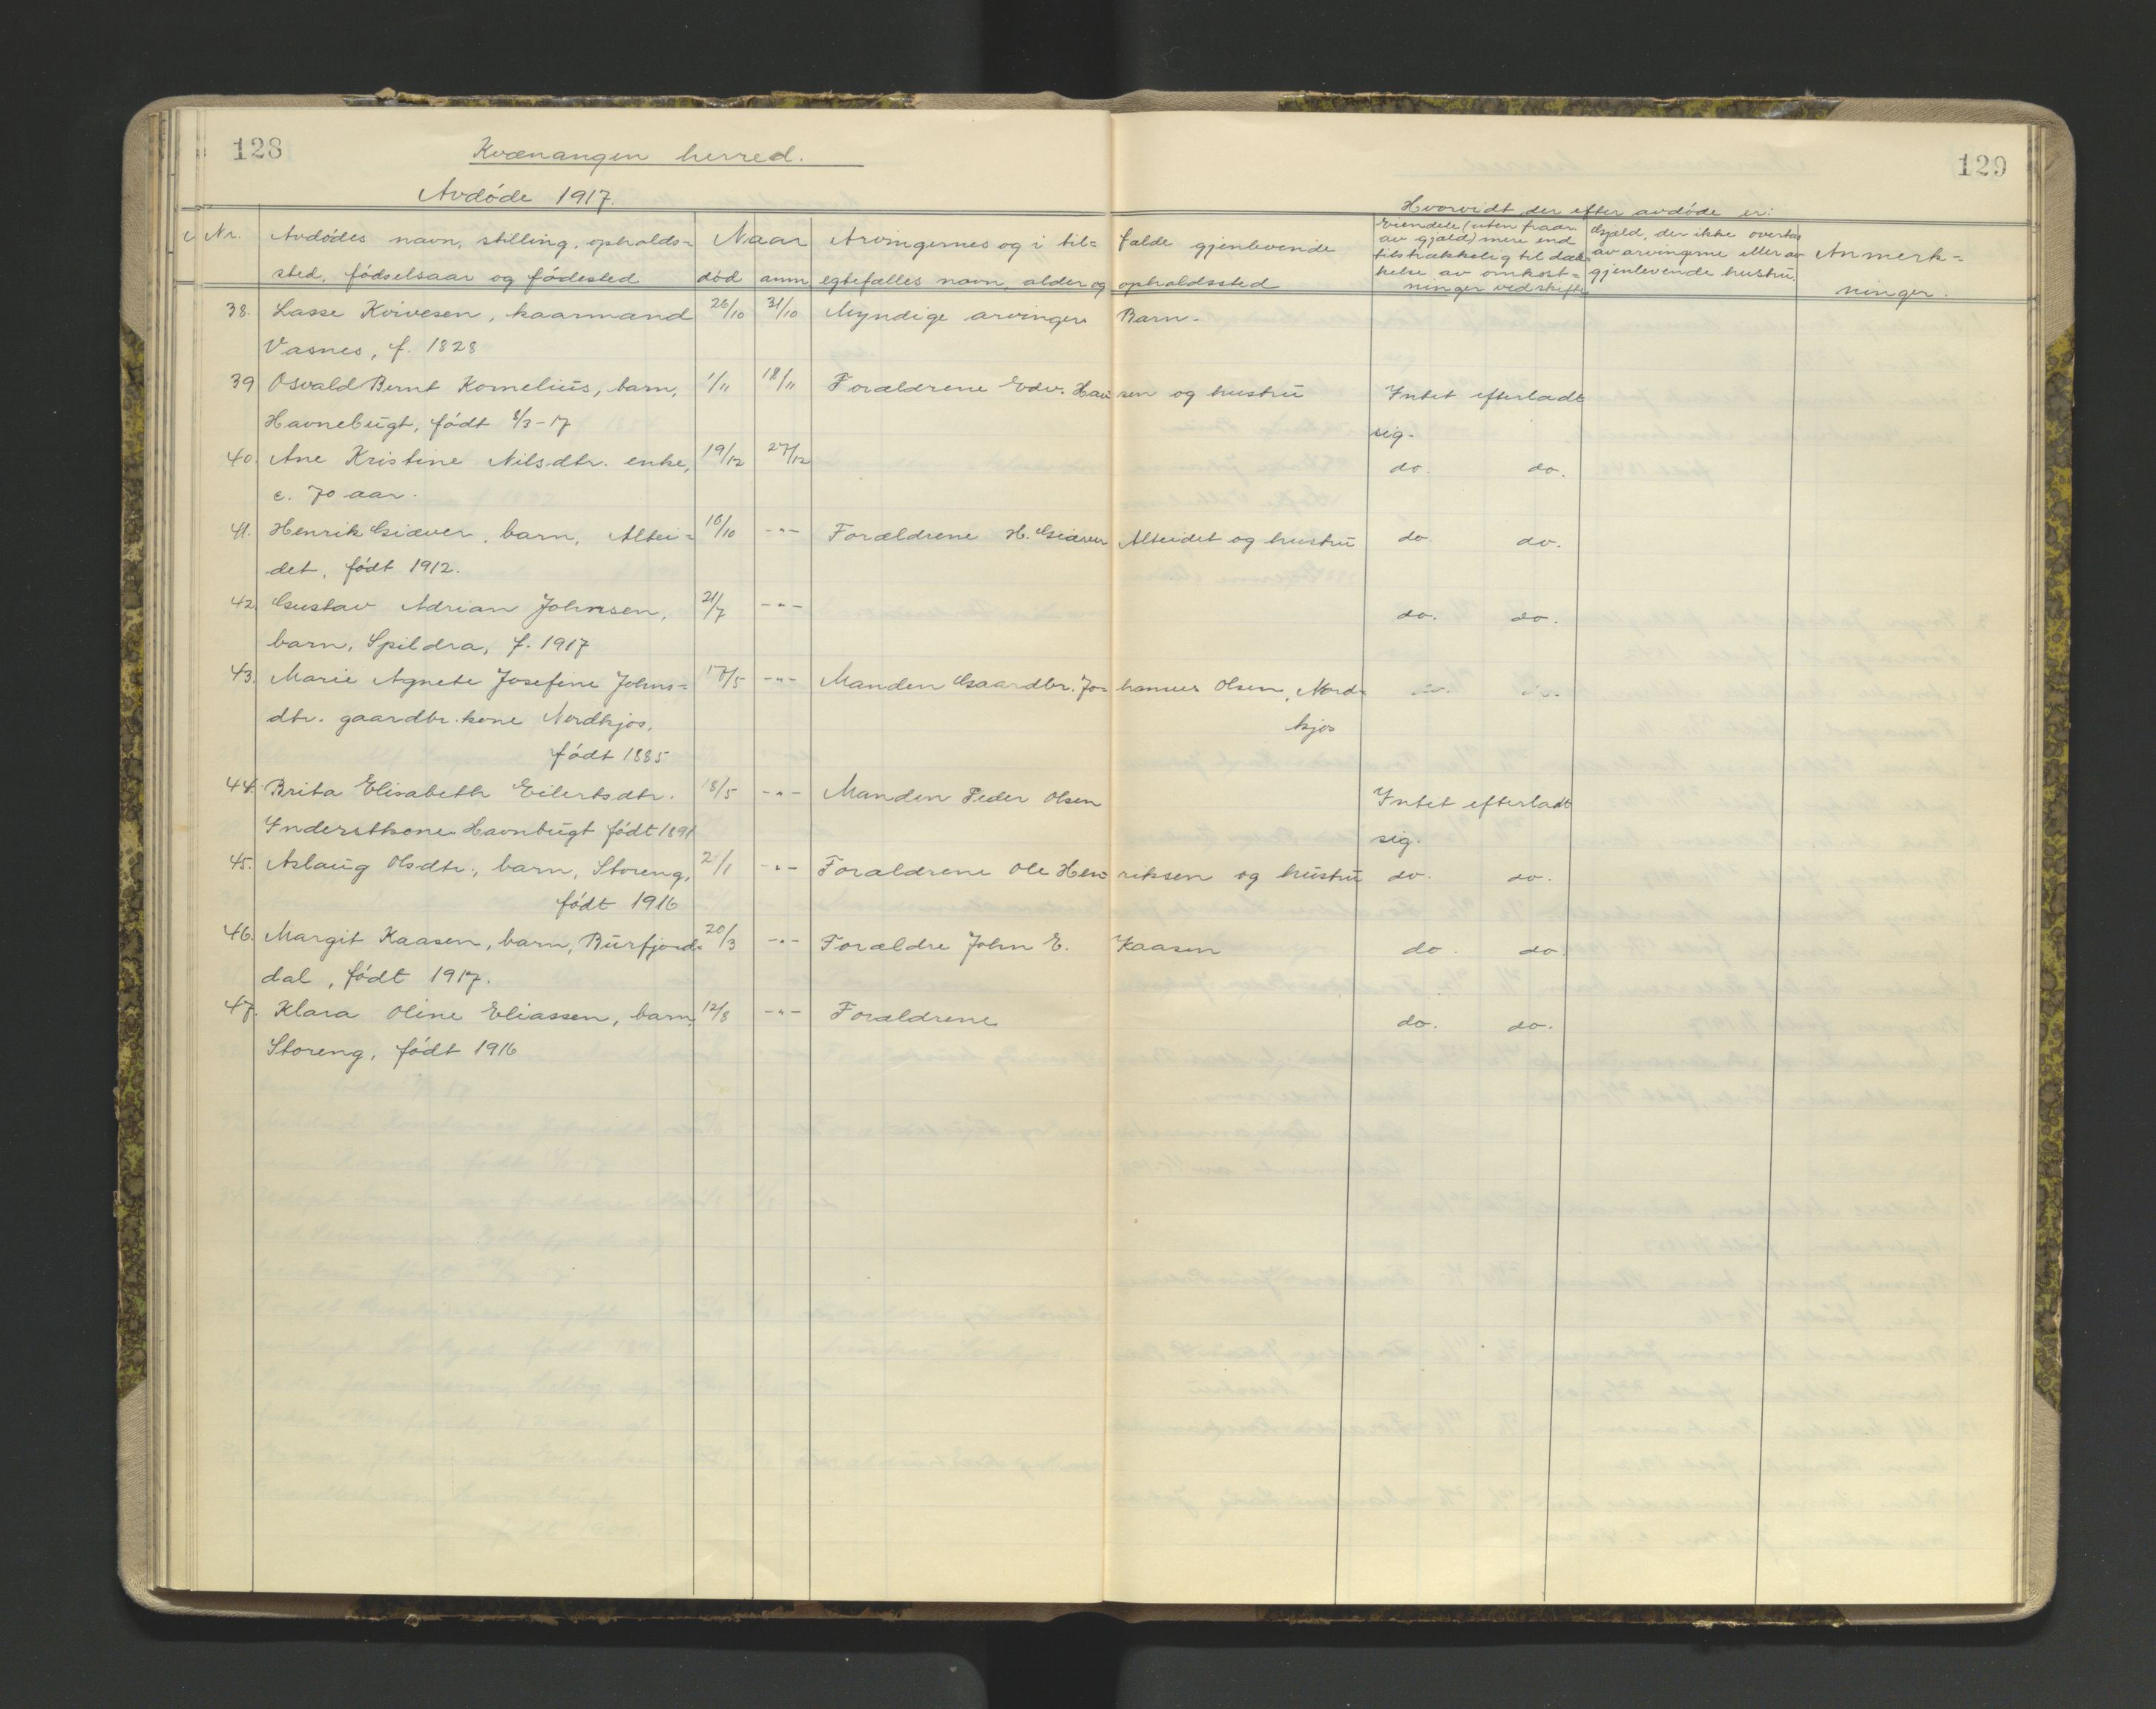 128
Kvænangen herred.
129
Avdøde 1917.
Hvorvidt der efter avdøde er:
Nr.
Avdødes navn, stilling, opholds=
sted, fødselsaar og fødested
Naar
død anm
Arvingernes og i til= fælde gjenlevende
egtefælles navn, alder og opholdssted
Eiendele (uten fradr.
av gjæld) mere end
tilstrækkelig til dæk=
kelse av omkost=
ninger ved skifte
Gjæld, der ikke overta
av arvingerne eller av
gjenlevende hustru.
Anmerk=
ninger.
38. Lasse Kvivesen, kaarmand 26/10 31/10 Myndige arvinger Barn.
Vasnes, f. 1828
39 Osvald Bernt Kornelius, barn, 1/11 18/11 Forældrene Edv. Han= sen og hustru Intet efterladt
Havnebugt, født 8/3-17 sig.
40. Ane Kristine Nilsdtr. enke, 19/12 27/12 do. do.
c. 70 aar.
41. Henrik Giæver, barn, Altei= 16/10 -"- Forældrene H. Giæver Alteidet og hustru do. do.
det, født 1912.
42. Gustav Adrian Johnsen, 21/7 -"- do. do.
barn, Spildra, f. 1917
43. Marie Agnete Josefine Johns= 17/5 -"- Manden Gaardbr. Jo= hannes Olsen, Nord= do. do.
dtr. gaardbr. kone Nordkjos, kjos
født 1885
44. Brita Elisabeth Eilertsdtr. 18/5 -"- Manden Peder Olsen Intet efterladt
Inderstkone Havnbugt født 1891 sig.
45. Aslaug Olsdtr., barn, Storeng, 2/1 -"- Forældrene Ole Hen= riksen og hustru do. do.
født 1916
46. Margit Kaasen, barn, Burfjord= 20/3 -"- Forældre John E. Kaasen do. do.
dal, født 1917.
47. Klara Oline Eliassen, barn, 12/8 -"- Forældrene do. do.
Storeng, født 1916